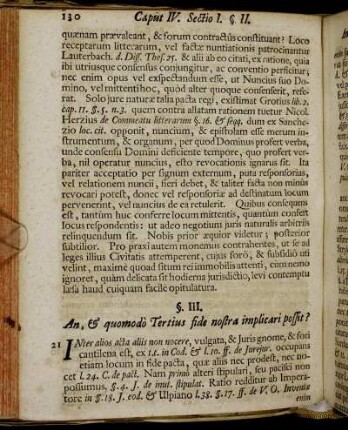 130 Caput IV. Sectio I. § II.
quænam prævaleant, & forum contractûs constituant? Loco
receptarum litterarum, vel factæ nuntiationis patrocinantur
Lauterbach. d. Diss. Thes. 25. & alii ab eo citati, ex ratione, quia
ibi utriusque consensus conjungitur, ac conventio perficitur;
nec enim opus vel exspectandum esse, ut Nuncius suo Do-
mino, vel mittenti hoc, quòd alter quoque consenserit, refe-
rat. Solo jure naturæ talia pacta regi, existimat Grotius lib. 2.
cap. 11. §. 5. n. 3. quem contra allatam rationem tuetur Nicol.
Herzius de Commeatu litterarum §. 16. & seqq. dum ex Sanche-
zio loc. cit. opponit, nuncium, & epistolam esse merum in-
strumentum, & organum, per quod Dominus profert verba,
unde consensu Domini deficiente tempore, quo profert ver-
ba, nil operatur nuncius, esto revocationis ignarus sit. Ita
pariter acceptatio per signum externum, puta responsorias,
vel relationem nuncii, fieri debet, & taliter facta non minùs
revocari potest, donec vel responsoriæ ad destinatum locum
pervenerint, vel nuncius de ea retulerit. Quibus consequens
est, tantùm huc conferre locum mittentis, quantùm confert
locus respondentis: ut adeo negotium juris naturalis arbitriis
relinquendum sit. Nobis prior æquior videtur; posterior
subtilior. Pro praxi autem monemus contrahentes, ut se ad
leges illius Civitatis attemperent, cujus forô, & subsidiô uti
velint, maximè quoad situm rei immobilis attenti, cùm nemo
ignoret, quàm delicata sit hodierna jurisdictio, levi contemptu
læsa haud cuiquam facilè opitulatura.
§. III.
An, & quomodò Tertius fide nostra implicari possit?
21 INter alios acta aliis non nocere, vulgata, & Juris gnome, & fori
cantilena est, ex l. 1. in Cod. & l. 10. ff. de Jurejur. occupans
etiam locum in fide pacta, quæ aliis nec prodest, nec no-
cet l. 24. C. de pact. Nam primò alteri stipulari, seu pacisci non
possumus, §. 4. J. de inut. stipulat. Ratio redditur ab Impera-
tore in §. 18. J. eod. & Ulpiano l. 38. §. 17. ff. de V. O. Inventæ
enim